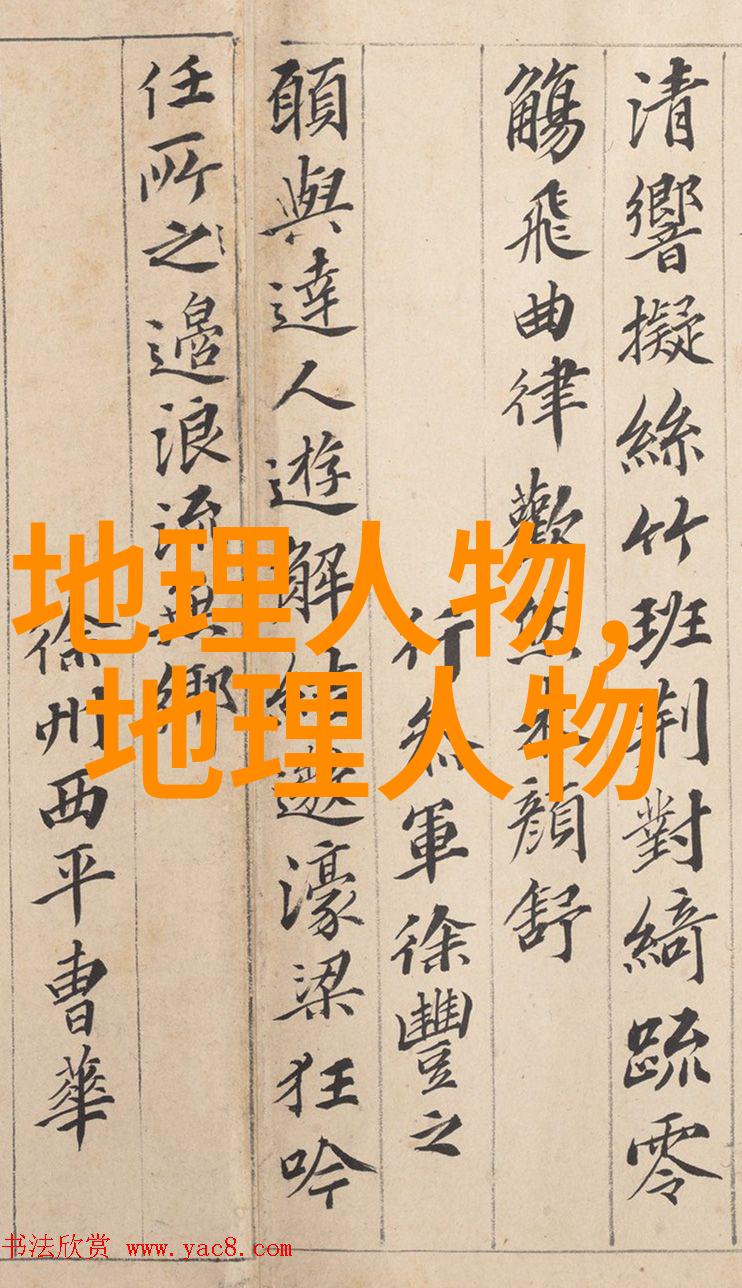 清響擬絲竹班荊對綺䟽零
觴飛曲律歡然朱顏舒
行參軍徐豐之
願與達人遊解結遨濠梁狂吟
任所之邊浪流無鄉
徐州西平曹華
地理人物,
地理人物
书法欣赏 www.yac8.com